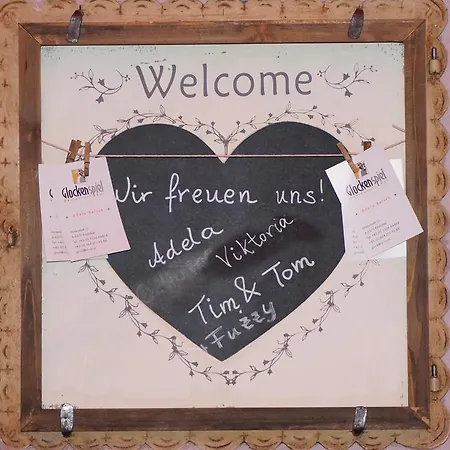 Welcome
Wir freuen uns!
Adela
Viktoria
Tim & Tom
Fuzzy
Glockenspiel
Glockenspiel